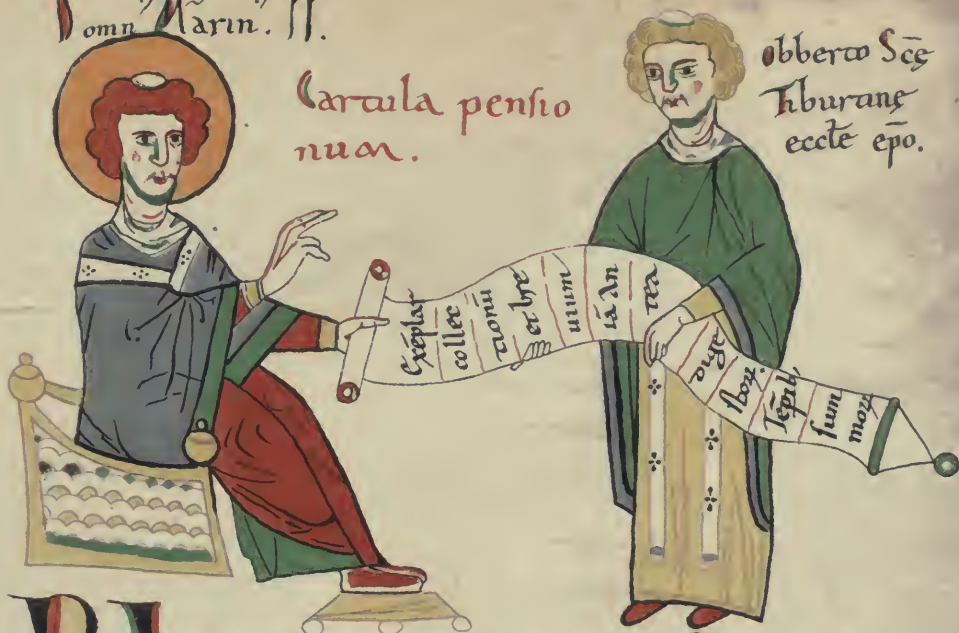 Domn̄ Marin. II.
Cartula pensio
num.
obberto Sc̄ę
Tiburtinę
eccłe ep̄o.
Exēplar
collec
tionū
et bre
uium
iā An
tea
dige
stoꝝ
Tēporib;
sum
moꝝ